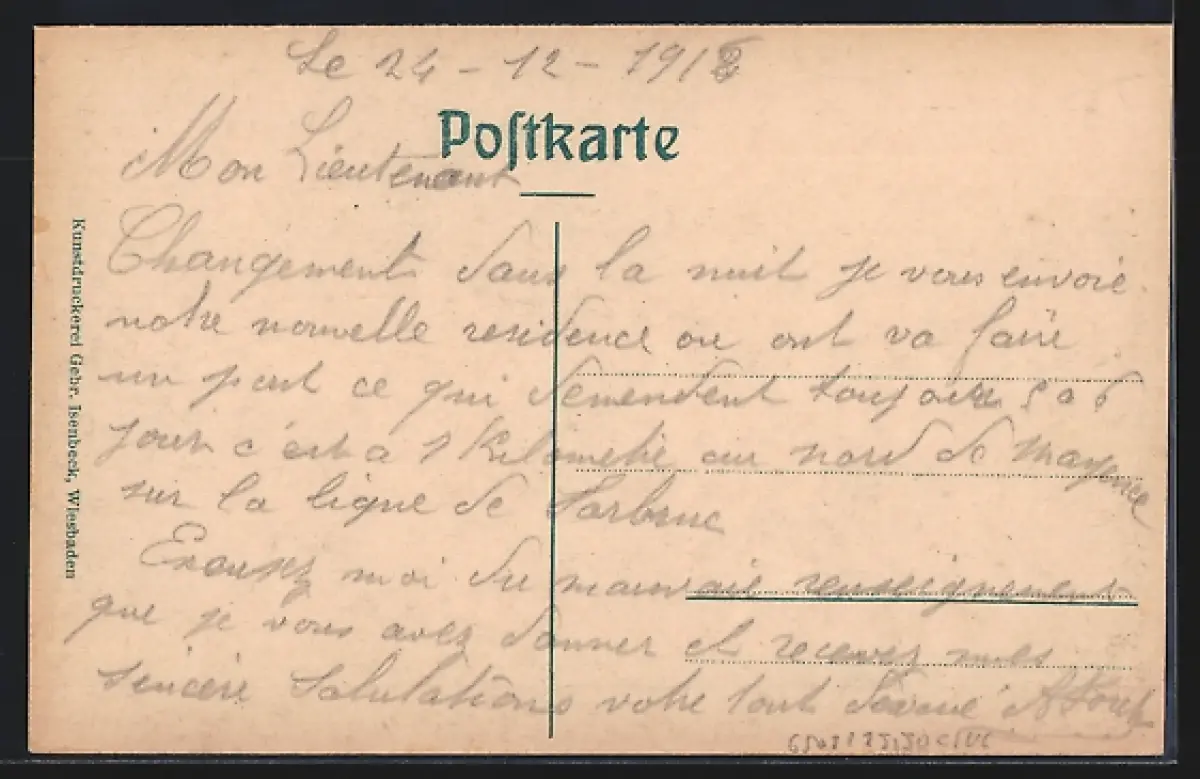 Le 24 - 12 - 1918
Postkarte
Mon Lieutenant
Changement dans la nuit je vous envoie
notre nouvelle residence ou ont va faire
un pont ce qui demendent toujours 5 a 6
jours c'est a 1 Kilometre au nord de Mayence
sur la ligne de Sarbruc
Excusez moi du mauvaie renseignement
que je vous avez donner et recevez mes
sincère Salutations votre tout dévoué
Kunstdruckerei Gebr. Isenbeck, Wiesbaden